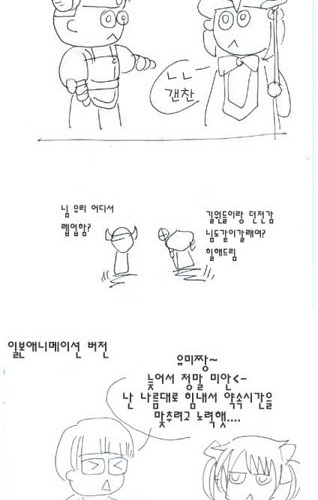 ㄴㄴ
갠찬
님 우리 어디서
렙업함?
길원들이랑 던전감
님도같이갈래여?
힐해드림
일본애니메이션 버전
유미짱~
늦어서 정말 미안<-
난 나름대로 힘내서 약속시간을
맞추려고 노력햇....